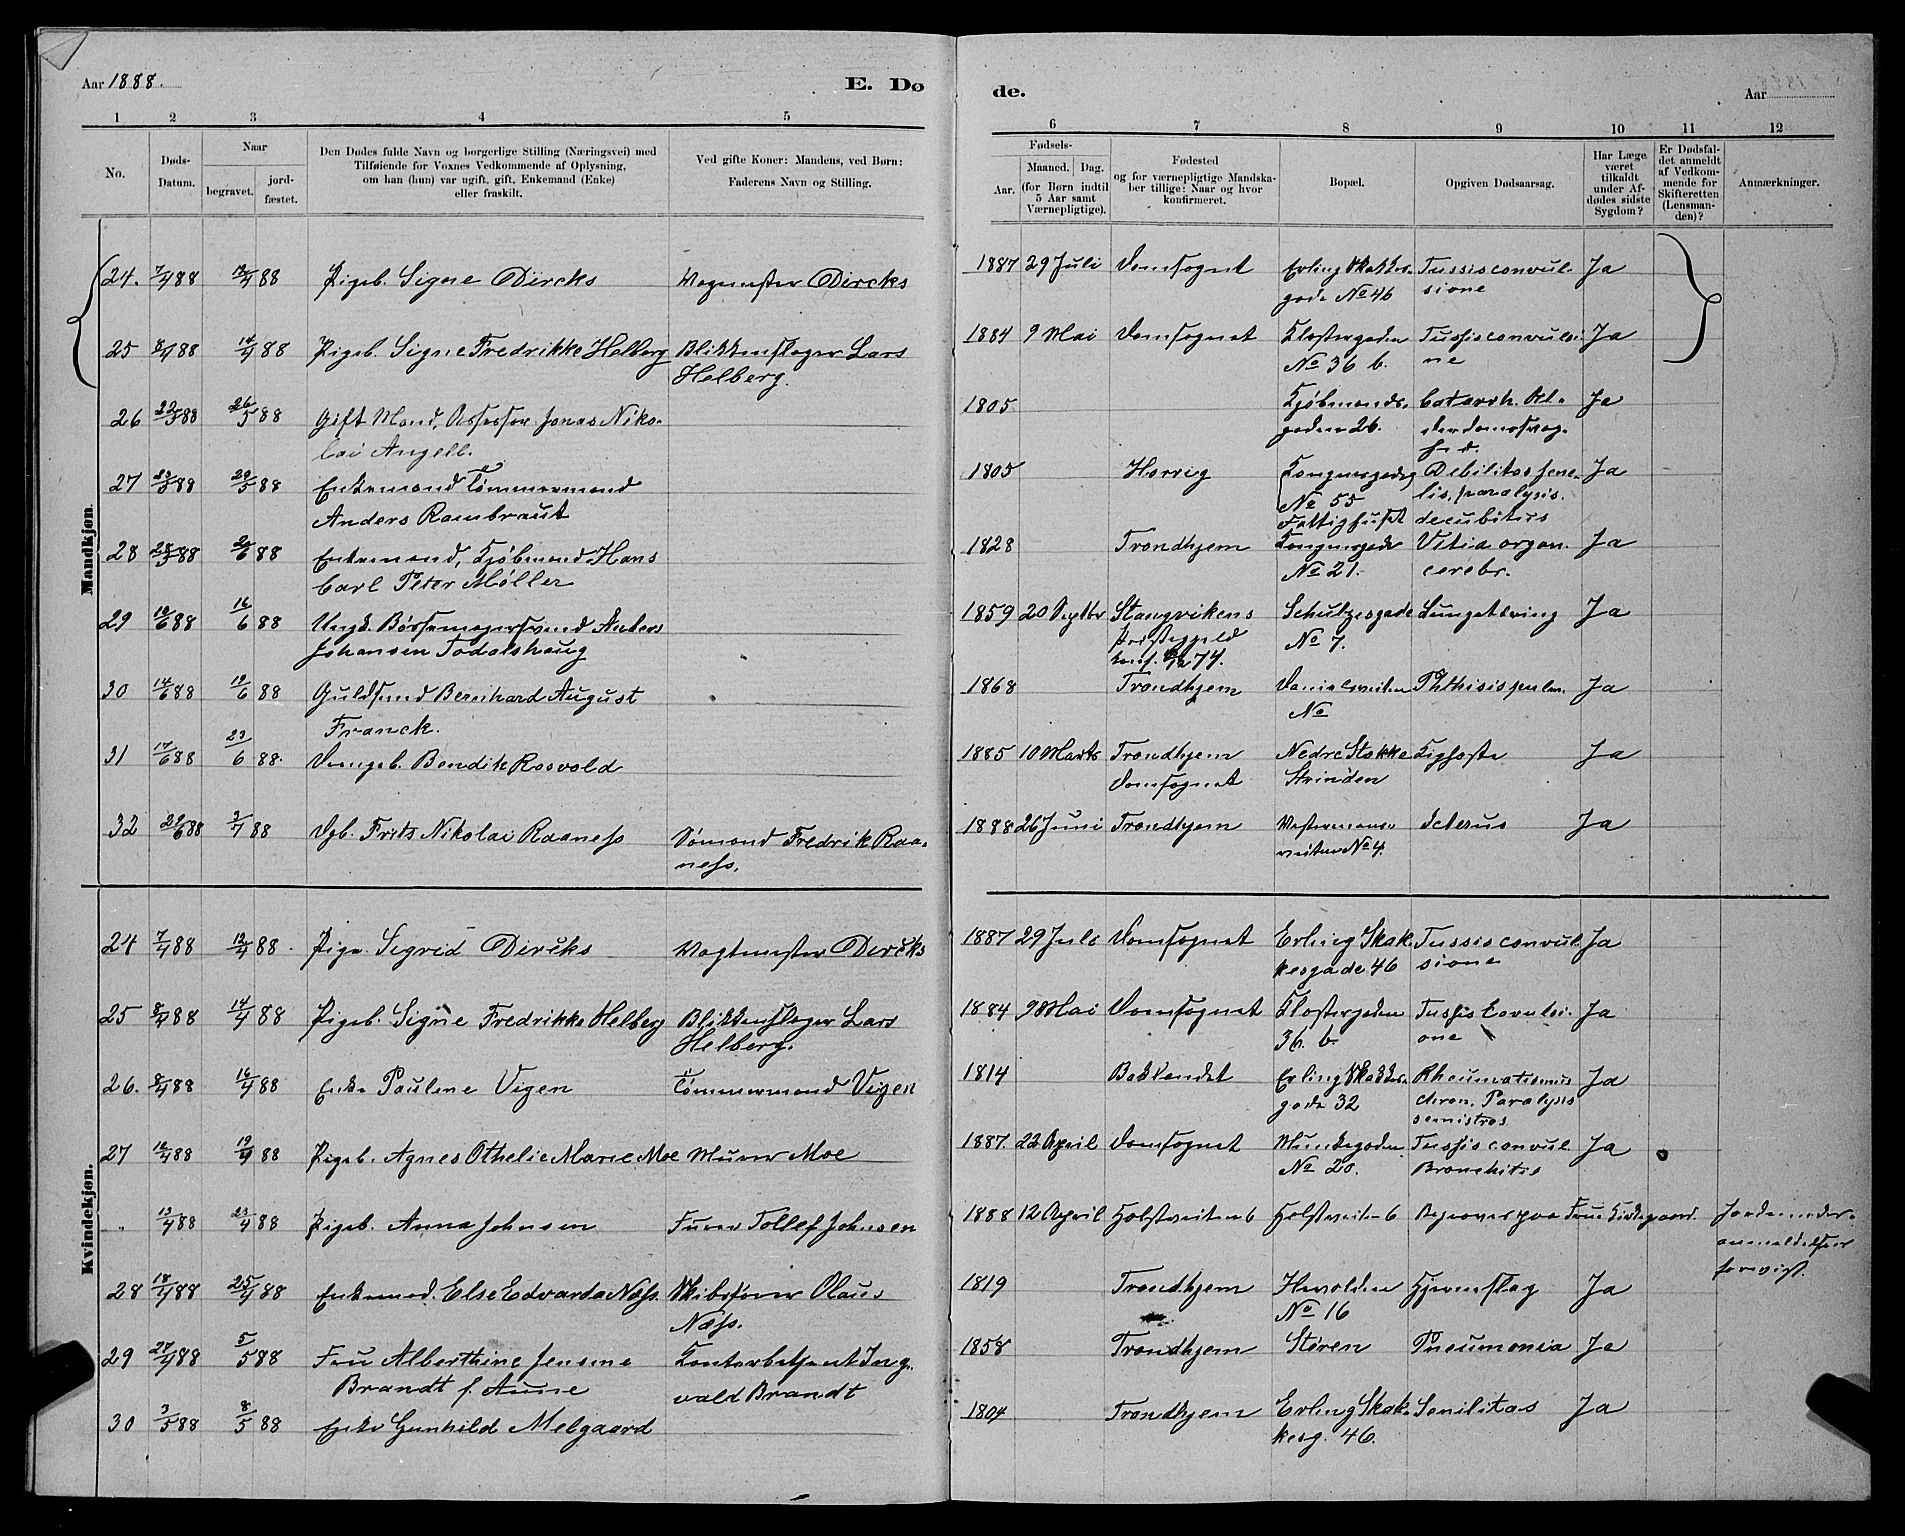 Aar 1888.
E. Dø
de.
Aar
1 2 3 4 5
6 7 8 9 10 11 12
No.
Døds-
Datum.
Naar
begravet.
jord-
fæstet.
Den Dødes fulde Navn og borgerlige Stilling (Næringsvei) med
Tilføiende for Voxnes Vedkommende af Oplysning,
om han (hun) var ugift, gift, Enkemand (Enke)
eller fraskilt.
Ved gifte Koner: Mandens, ved Børn:
Faderens Navn og Stilling.
Fødsels-
Aar.
Maaned. Dag.
(for Børn indtil
5 Aar samt
Værnepligtige).
Fødested
og for værnepligtige Mandska-
ber tillige: Naar og hvor
konfirmeret.
Bopæl.
Opgiven Dødsaarsag.
Har Læge
været
tilkaldt
under Af-
dødes sidste
Sygdom?
Er Dødsfal-
det anmeldt
af Vedkom-
mende for
Skifteretten
(Lensman-
den)?
Anmærkninger.
Mandkjøn.
24. 7/4 88 13/4 88 Pigeb. Signe Dircks Vagmester Dircks 1887 29 Juli Domsognet Erling Skakkes- Tussis convul- Ja
gade No 46 sione
25 8/4 88 14/4 88 Pigeb. Signe Fredrikke Helberg Blikkenslager Lars 1884 9 Mai Domsognet Klostergaden Tussis convulsi- Ja
Helberg. No 36 b. ne
26 22/5 88 26/5 88 Gift Mand, Assessor Jonas Niko- 1805 Kjøbmands- Catarrh. Ja
lai Angell. gaden 26.
27 23/5 88 29/5 88 Enkemand Tømmermand 1805 Horvig Kongensgade Debilitas sene- Ja
Anders Rambraut No 55 lis, paralysis.
Fattighuset decubitus
28 88 6 88 Enkemand, Kjøbmand Hans 1828 Trondhjem Kongensgade Vitia organ. Ja
Carl Peter Møller No 21. cerebr.
29 10/6 88 16/6 88 Ungk. Børsemagersvend Anders 1859 20 Septbr Stangvikens Schultzesgade Lungetæring Ja
Johansen Todalshaug Præstegjeld No 7.
konf. 74.
30 14/6 88 19/6 88 Guldsmed Bernhard August 1868 Trondhjem Danielsveiten Phthisis pulm. Ja
Franck. No
31 17/6 88 23/6 88. Drengeb. Bendik Rosvold 1885 10 Marts Trondhjem Nedre Stokke Kighoste Ja
Domsognet Strinden
32 29/6 88 3/7 88 Dgb. Frits Nikolai Raaness Sømand Fredrik Raa- 1888 26 Juni Trondhjem Vestermans- Icterus Ja
ness. veiten No 4.
Kvindekjøn.
24 7/4 88 13/4 88. Pige Sigrid Dircks Vagtmester Dircks 1887 29 Juli Domsognet Erling Skak- Tussis convul- Ja
kesgade 46 sione
25 8/4 88 14/4 88 Pigeb. Signe Fredrikke Helberg Blikkenslager Lars 1884 9 Mai Domsognet Klostergaden Tussis convulsi- Ja
Helberg. 36. b. one
26. 8/4 88 16/4 88 Enke Pauline Vigen Tømmermand Vigen 1814 Baklandet Erling Skakkes- Rheumatismus Ja
gade 32 chron. Paralysis
27 12/4 88 19/4 88 Pigeb. Agnes Othelie Marie Moe Murer Moe 1887. 22 April Domsognet Munkegaden Tussis convul. Ja
No 20. Bronchitis
" 13/4 88 23/4 88 Pigeb. Anna Johnsen Furer Tollef Johnsen 1888 12 April Holstveiten 6 Holstveiten 6 Fru Kirkegaard. Jordemoder-
anmeldelsen
forevist.
28 18/4 88 25/4 88 Else Edvarda Næss. Skibsfører Olaus 1819 Trondhjem Havolden Hjerneslag Ja
Næss. No 16
29 27/4 88 5/5 88 Fru Alberthine Jensine Kontorbetjent Ing- 1858 Trondhjem Støren Pneumonia Ja
Brandt f. Aune vald Brandt
30 3/5 88 8/5 88 Enke Gunhild Melgaard 1804 Trondhjem Erling Skak- Senilitas Ja
kesg. 46.